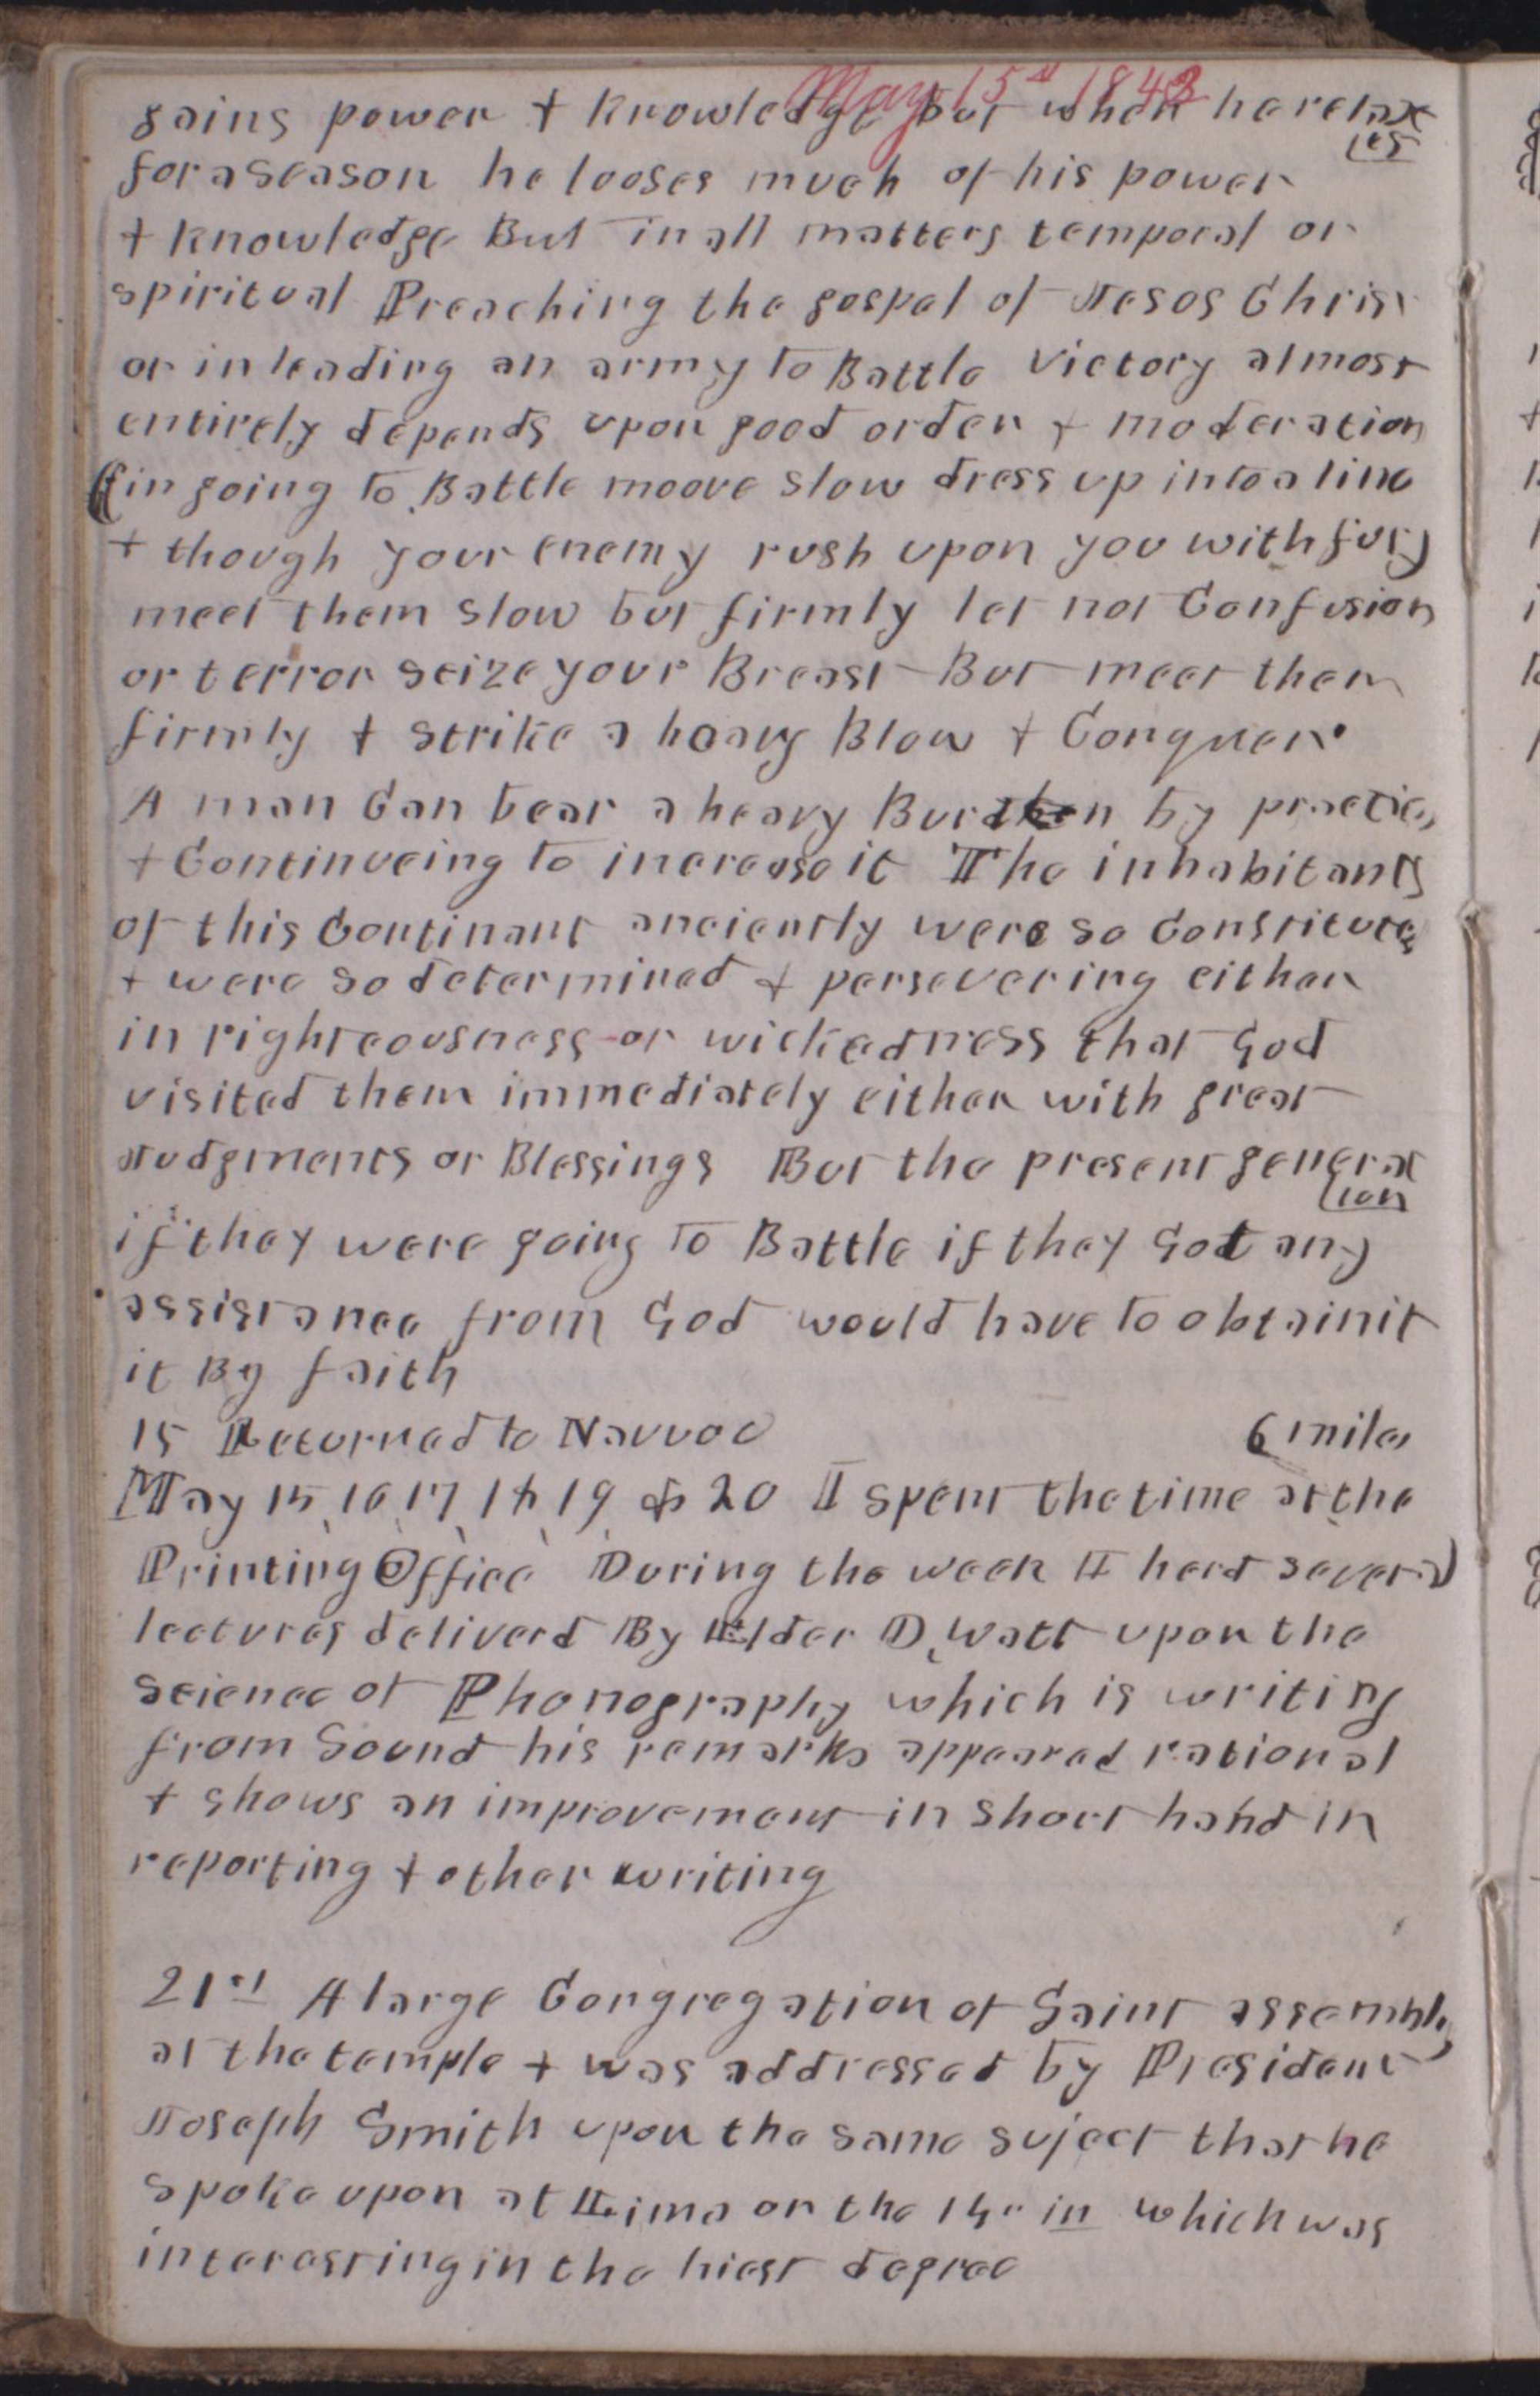 May 15th 1843
gains power & knowledge but when he relax
es
for a season he looses much of his power
& knowledge But in all matters temporal or
spiritual Preaching the gospel of Jesos Christ
or in leading an army to Battle victory almost
entirely depends upon good order & moderation
(in going to Battle moove slow dress up into a line
& though your enemy rush upon you with fury
meet them slow but firmly let not Confusion
or terror seize your Breast But meet them
firmly & strike a heavy Blow & Conquer.
A man Can bear a heavy Burthen by practice
& Continueing to increase it The inhabitants
of this Continant anciently were so Constitute
& were so determined & persevering either
in righteousness or wickedness that God
visited them immediately either with great
Judgments or Blessings But the present generat
ion
if they were going to Battle if they got any
assistance from God would have to obtainit
it By faith
15 Returned to Nauvoo 6 mile
May 15, 16, 17, 18, 19 & 20 I spent the time at the
Printing Office During the week I herd several
lectures deliverd By Elder D, Watt upon the
science of Phonography which is writing
from Sound his remarks appeared rational
& shows an improvement in short hand in
reporting & other writing
21st A large Congregation of Saint assembled
at the temple & was addressed by President
Joseph Smith upon the same suject that he
spoke upon at Lima on the 14" in which was
interesting in the hiest degree